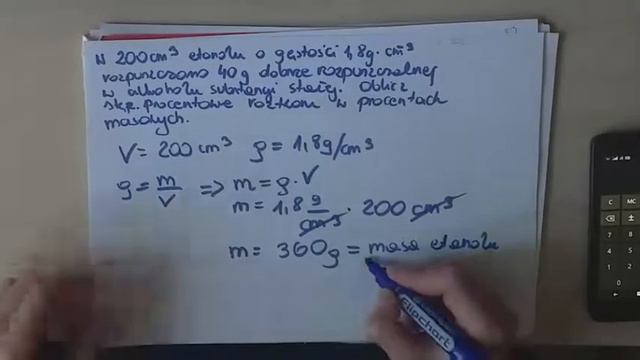 W 200cm³ etanolu o gęstości 1,8g·cm³
rozpuszczono 40g dobrze rozpuszczalnej
w alkoholu substancji stałej. Oblicz
stęż. procentowe roztworu w procentach
masowych.
V = 200 cm³ ρ = 1,8g/cm³
ρ = m/V => m = ρ·V
m = 1,8 g/cm³ · 200 cm³
m = 360g = masa etanolu
flipchart